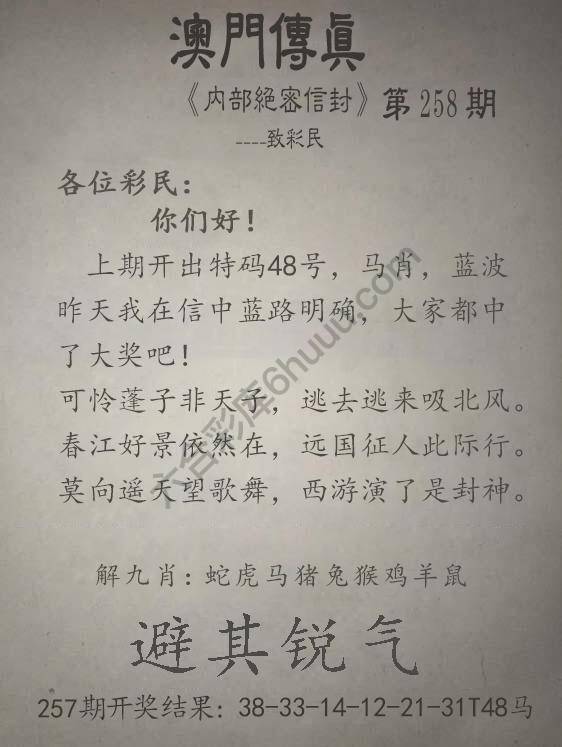 澳門傳眞
《内部絕密信封》第258期
----致彩民
各位彩民：
你们好！
上期开出特码48号，马肖，蓝波
昨天我在信中蓝路明确，大家都中
了大奖吧！
可怜蓬子非天子，逃去逃来吸北风。
春江好景依然在，远国征人此际行。
莫向遥天望歌舞，西游演了是封神。
解九肖：蛇虎马猪兔猴鸡羊鼠
避其锐气
257期开奖结果：38-33-14-12-21-31T48马
六合彩库6huuu.com